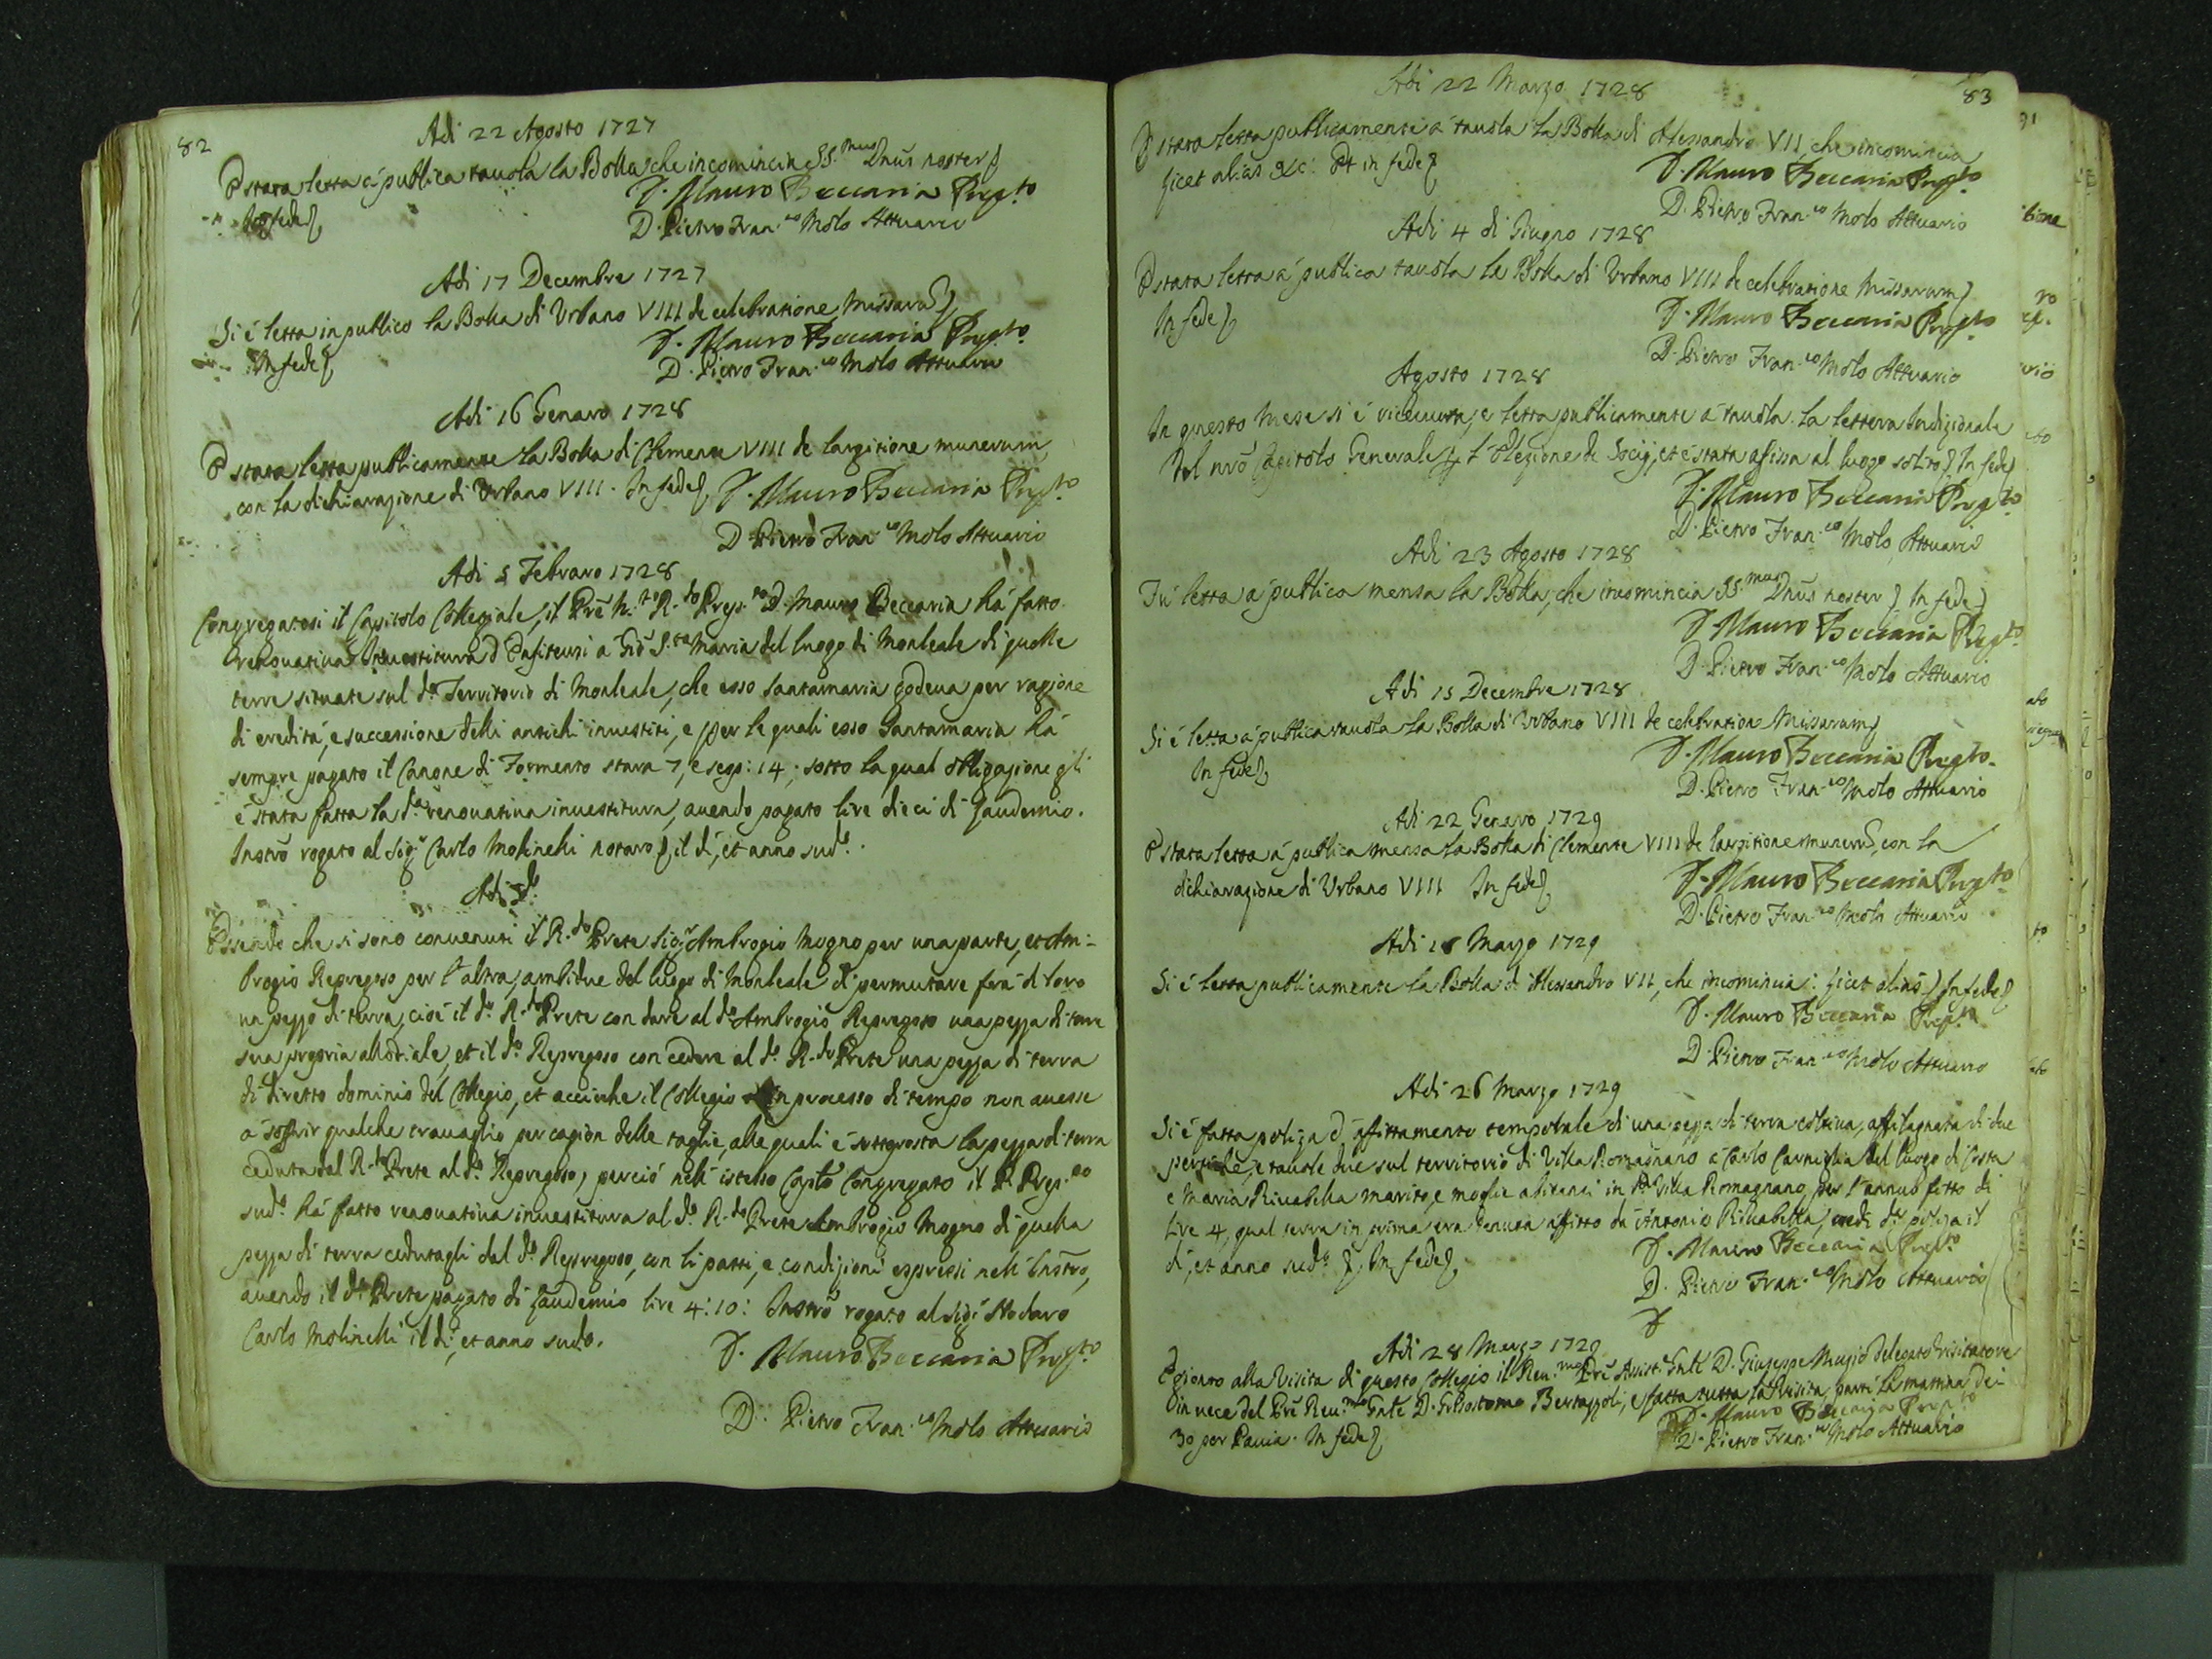 82
Adi 22 Agosto 1727
È stata letta à publica tauola la Bolla che incomincia SS.mus Dnūs noster
In fede
D. Mauro Beccaria Prepto
D. Pietro Fran.co Molo Attuario
Adi 17 Decembre 1727
Si è letta in publico la Bolla di Vrbano VIII de celebratione Missarū
In fede
D. Mauro Beccaria Prepto
D. Pietro Fran.co Molo Attuario
Adi 16 Genaro 1728
È stata letta publicamente la Bolla di Clemente VIII de largitione munerum,
con la dichiarazione di Vrbano VIII. In fede D. Mauro Beccaria Prepto
D. Pietro Fran.co Molo Attuario
Adi 5 Febraro 1728
Congregatosi il Capitolo Collegiale, il Prē M.to R.do Prep.to D. Mauro Beccaria hà fatto
renouatiua Inuestitura d'Enfiteusi a Gio S.ta Maria del luogo di Monleale di quelle
terre situate sul d.o Territorio di Monleale, che esso Santamaria godeua per ragione
di eredità, e successione delli antichi inuestiti, e per le quali esso Santamaria hà
sempre pagato il Canone di Formento stara 7, e 14; sotto la qual obligazione gli
è stata fatta la d.a renouatiua inuestitura, auendo pagato lire dieci di Laudemio.
Instrō rogato al Sig.r Carlo Molinelli notaro, il dì, et anno sud.o.
Adi d.o
Essendo che si sono conuenuti il R.do Prete Sig.r Ambrogio Mogno per una parte, et Am-
brogio Repregoso per l'altra, ambidue del luogo di Monleale di permutare frà di loro
un pezzo di terra, cioè il d.o R.do Prete con dare al d.o Ambrogio Repregoso una pezza di terra
sua propria allodiale, et il d.o Repregoso con cedere al d.o R.do Prete una pezza di terra
di diretto dominio del Collegio, et acciochè il Collegio in processo di tempo non auesse
à soffrir qualche trauaglio per cagion delle taglie, alle quali è sottoposta la pezza di terra
ceduta dal R.do Prete al d.o Repregoso, perciò nell'istesso Caplo Congregato il P. Prep.to
sud.o hà fatto renouatiua inuestitura al d.o R.do Prete Ambrogio Mogno di quella
pezza di terra cedutagli dal d.o Repregoso, con li patti, e condizioni espressi nell'Instrō,
auendo il d.o Prete pagato di Laudemio lire 4:10: Instrō rogato al Sig.r Nodaro
Carlo Molinelli il dì, et anno sudo.
D. Mauro Beccaria Prepto
D. Pietro Fran.co Molo Attuario
83
Adi 22 Marzo 1728
È stata letta publicamente à tauola la Bolla di Alessandro VII, che incomincia
Licet alias &c: Et in fede
D. Mauro Beccaria Prepto
D. Pietro Fran.co Molo Attuario
Adi 4 di Giugno 1728
È stata letta à publica tauola la Bolla di Vrbano VIII de celebratione Missarum
In fede
D. Mauro Beccaria Prepto
D. Pietro Fran.co Molo Attuario
Agosto 1728
In questo mese si è riceuuta, e letta publicamente à tauola la lettera Indizionale
del nrō Capitolo Generale l'Elezione de Socij, et è stata afissa al luogo solito. In fede
D. Mauro Beccaria Prepto
D. Pietro Fran.co Molo, Attuario
Adi 23 Agosto 1728
Fù letta à publica mensa la Bolla, che incomincia SS.mus Dnūs noster. In fede
D. Mauro Beccaria Prepto
D. Pietro Fran.co Molo Attuario
Adi 15 Decembre 1728
Si è letta à publica tauola la Bolla di Vrbano VIII de celebratione Missarum
In fede
D. Mauro Beccaria Prepto
D. Pietro Fran.co Molo Attuario
Adi 22 Genaro 1729
È stata letta à publica mensa la Bolla di Clemente VIII de largitione munerū, con la
dichiarazione di Vrbano VIII In fede
D. Mauro Beccaria Prepto
D. Pietro Fran.co Molo Attuario
Adi 18 Marzo 1729
Si è letta publicamente la Bolla di Alessandro VII, che incomincia: Licet alias. In fede
D. Mauro Beccaria Prepto
D. Pietro Fran.co Molo Attuario
Adi 26 Marzo 1729
Si è fatta poliza d'affittamento temporale di una pezza di terra coltiua, affilagnata di due
pertiche, e tauole due sul territorio di Villa Romagnano à Carlo Carniglia del luogo di Costa
e Maria Riuabella marito, e moglie abitanti in d.a Villa Romagnano, per l'annuo fitto di
lire 4, qual terra in prima era tenuta affitto da Antonio Riuabella, uedi d.a poliza il
dì, et anno sud.o In fede
D. Mauro Beccaria Prepto
D. Pietro Fran.co Molo Attuario
D
Adi 28 Marzo 1729
È gionto alla Visita di questo Collegio il Reu.mo Prē Assist. Gnlē D. Giuseppe Mugio delegato Visitatore
in uece del Prē Reu.mo Gnlē D. Grisostomo Bertazzoli, e fatta tutta la Visita partì la mattina dei
30 per Pauia. In fede
D. Mauro Beccaria Prepto
D. Pietro Fran.co Molo Attuario